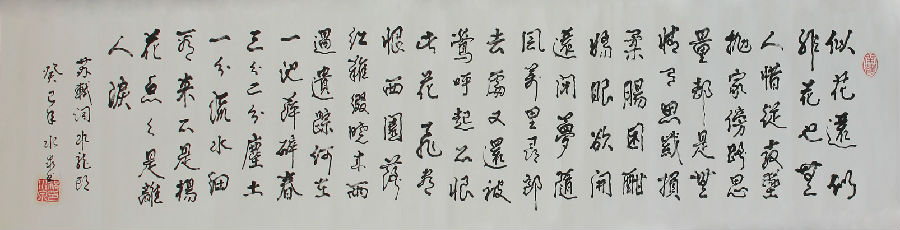 似花還似
非花也無
人惜從教墜
抛家傍路思
量都是無
情有思縈損
柔腸困酣
嬌眼欲開
還閉夢隨
風萬里尋郎
去處又還被
鶯呼起不恨
此花飛盡
恨西園落
紅難綴曉来雨
過遺踪何在
一池萍碎春
三分二分塵土
一分流水細
看来不是楊
花点々是離
人淚
蘇軾詞水龍吟
癸巳年水泉